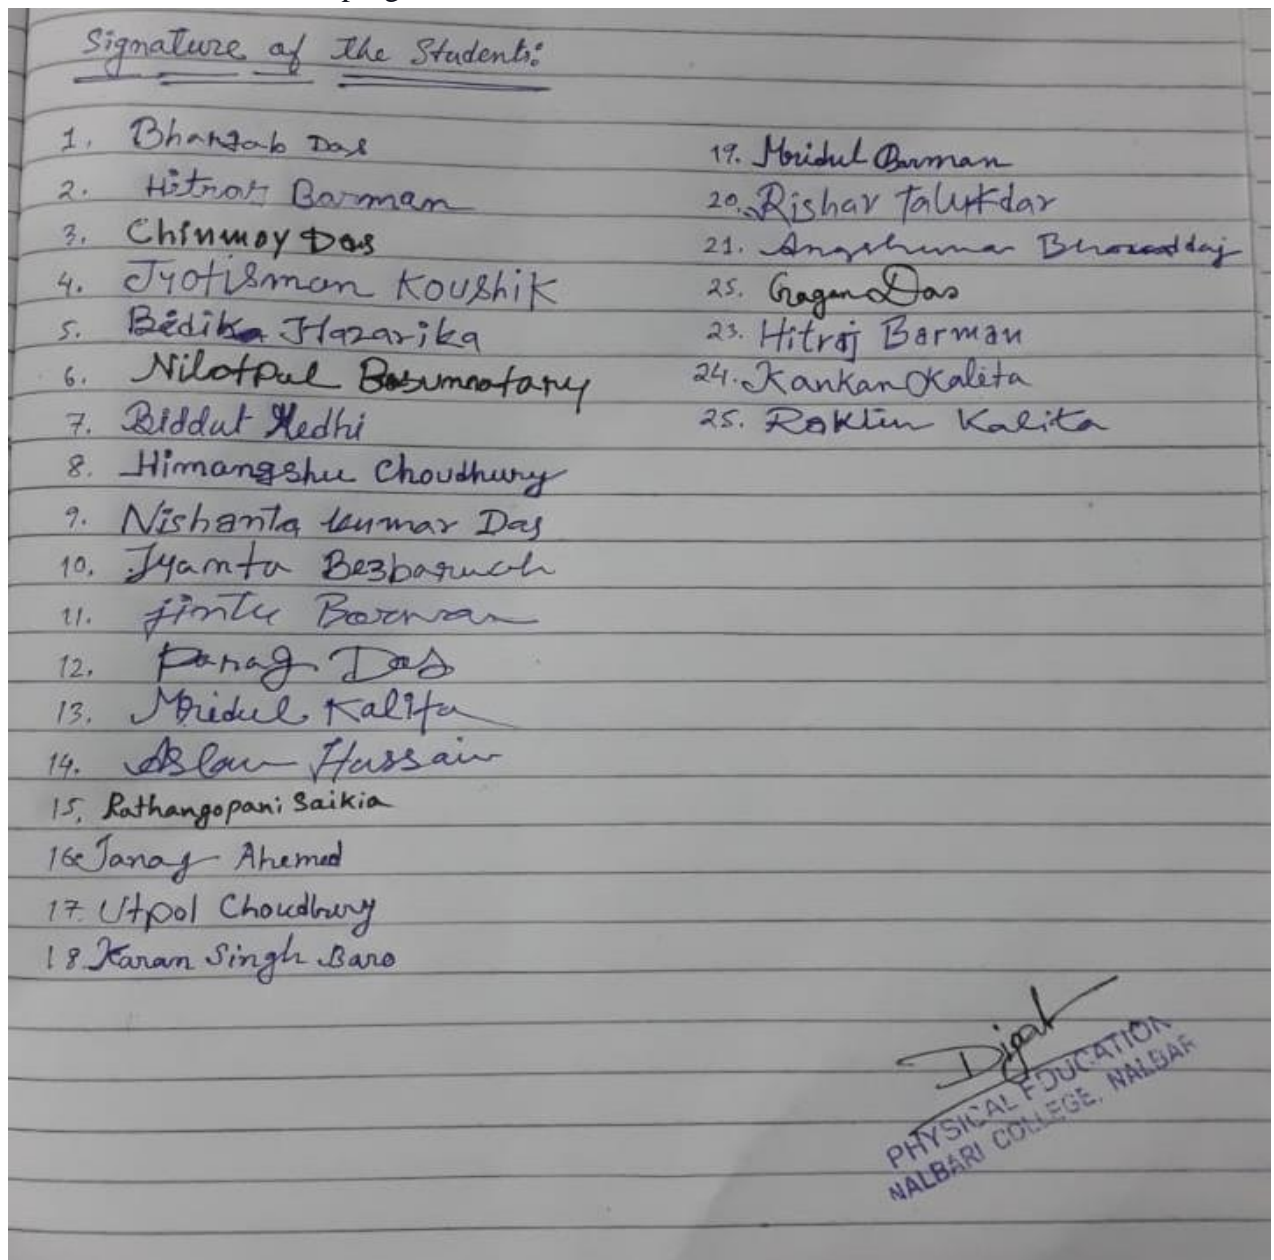 Signature of the Students:
1. Bhargab Das
2. Hitraj Barman
3. Chinmoy Das
4. Jyotisman Koushik
5. Bedika Hazarika
6. Nilotpul Basumatary
7. Biddut Medhi
8. Himangshu Choudhury
9. Nishanta kumar Das
10. Jyamta Bezbaruah
11. Jintu Barman
12. Parag Das
13. Mridul Kalita
14. Aslam Hussain
15. Rathangopani Saikia
16. Ahemed
17. Utpol Choudhury
18. Karan Singh Baro
19. Mridul Barman
20. Rishav Talukdar
21. Angshuman
25. Gagan Das
23. Hitraj Barman
24. Kankan Kalita
25. Kalita
PHYSICAL EDUCATION
NALBARI COLLEGE, NALBAR